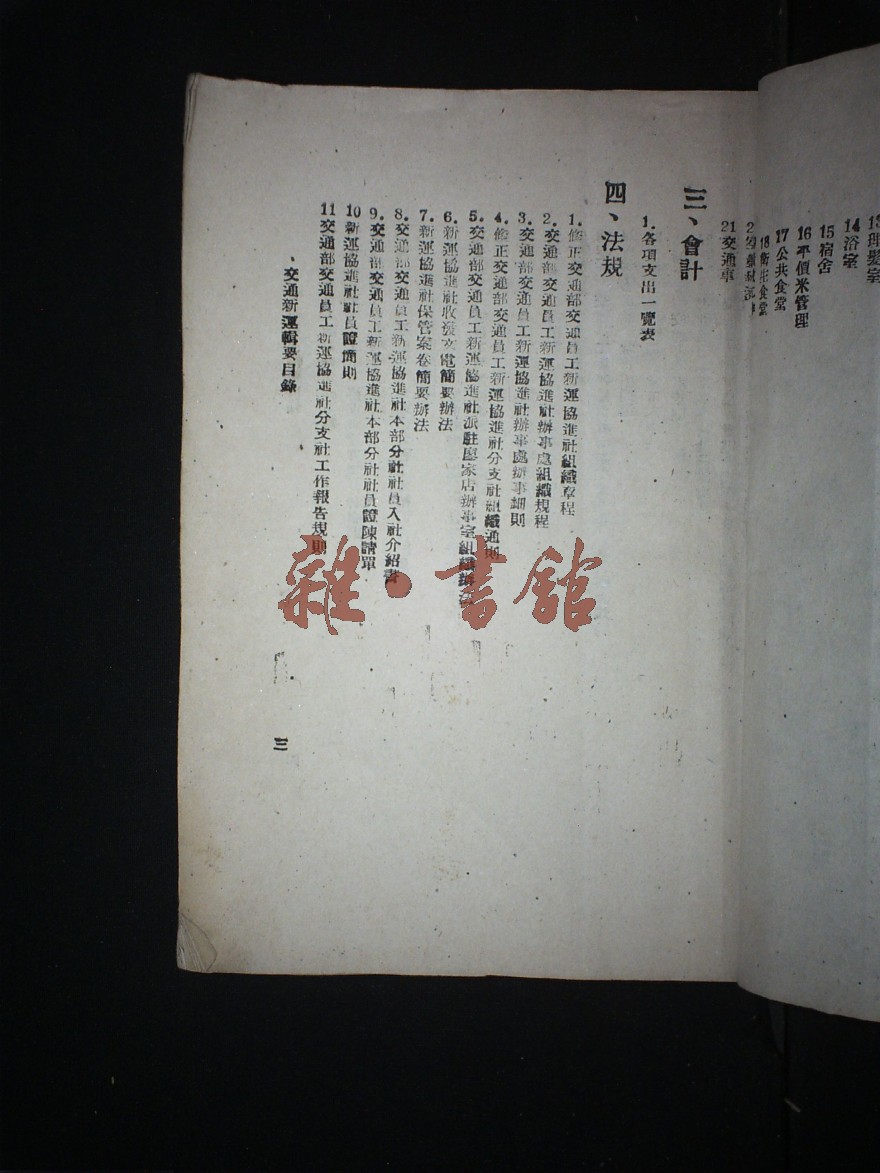 13理髮室
14浴室
15宿舍
16平價米管理
17公共食堂
18衛生食堂
21交通車
三、會計
1.各項支出一覽表
四、法規
1.修正交通部交通員工新運協進社組織章程
2.交通部交通員工新運協進社辦事處組織規程
3.交通部交通員工新運協進社辦事處辦事細則
4.修正交通部交通員工新運協進社分支社組織通則
5.交通部交通員工新運協進社派駐廖家店辦事室組織辦法
6.新運協進社收發文電簡要辦法
7.新運協進社保管案卷簡要辦法
8.交通部交通員工新運協進社本部分社社員入社介紹書
9.交通部交通員工新運協進社本部分社社員證陳請單
10新運協進社社員證簡則
11交通部交通員工新運協進社分支社工作報告規則
交通新運輯要目錄
三
雜·書館